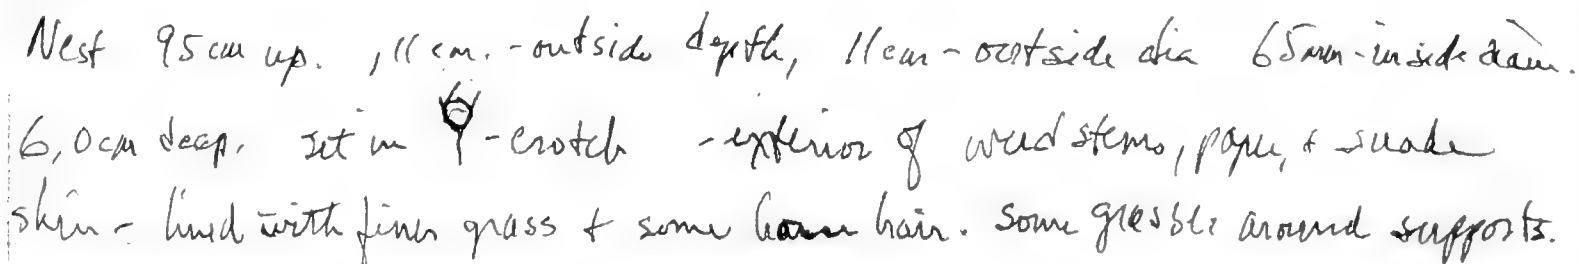 Nest 95cm up. , 11cm. - outside depth, 11cm - outside dia 65mm - inside diam.
6,0cm deep. set in Y - crotch - exterior of weed stems, paper, + snake
skin - lined with finer grass + some hair. Some around supports.